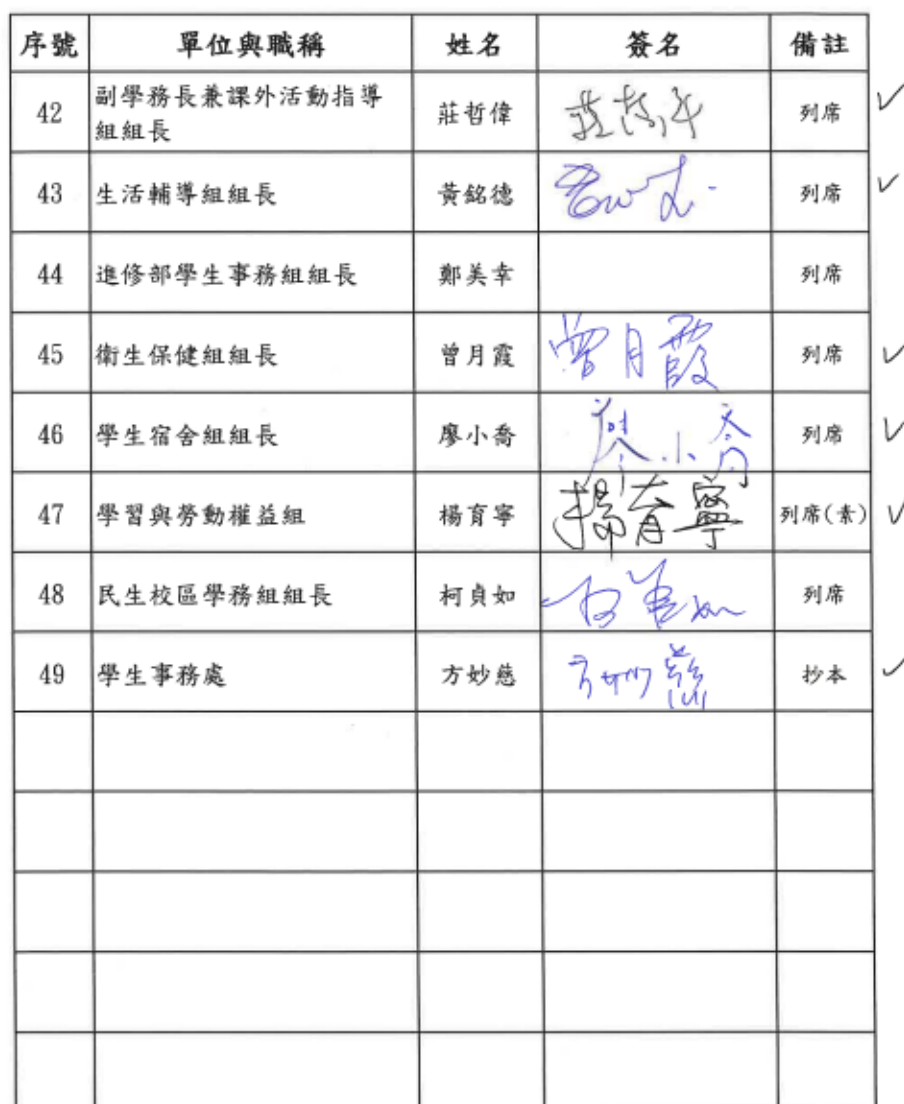 序號 單位與職稱 姓名 簽名 備註
42 副學務長兼課外活動指導組組長 莊哲偉 莊哲偉 列席 ✓
43 生活輔導組組長 黃銘德 列席 ✓
44 進修部學生事務組組長 鄭美幸 列席
45 衛生保健組組長 曾月霞 曾月霞 列席 ✓
46 學生宿舍組組長 廖小喬 廖小喬 列席 ✓
47 學習與勞動權益組 楊育寧 楊育寧 列席(素) ✓
48 民生校區學務組組長 柯貞如 列席
49 學生事務處 方妙慈 方妙慈 抄本 ✓